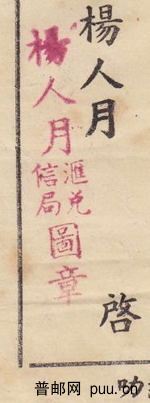 楊人月
啓
楊人月
滙兑
信局
圖章
普邮网 puu.cn